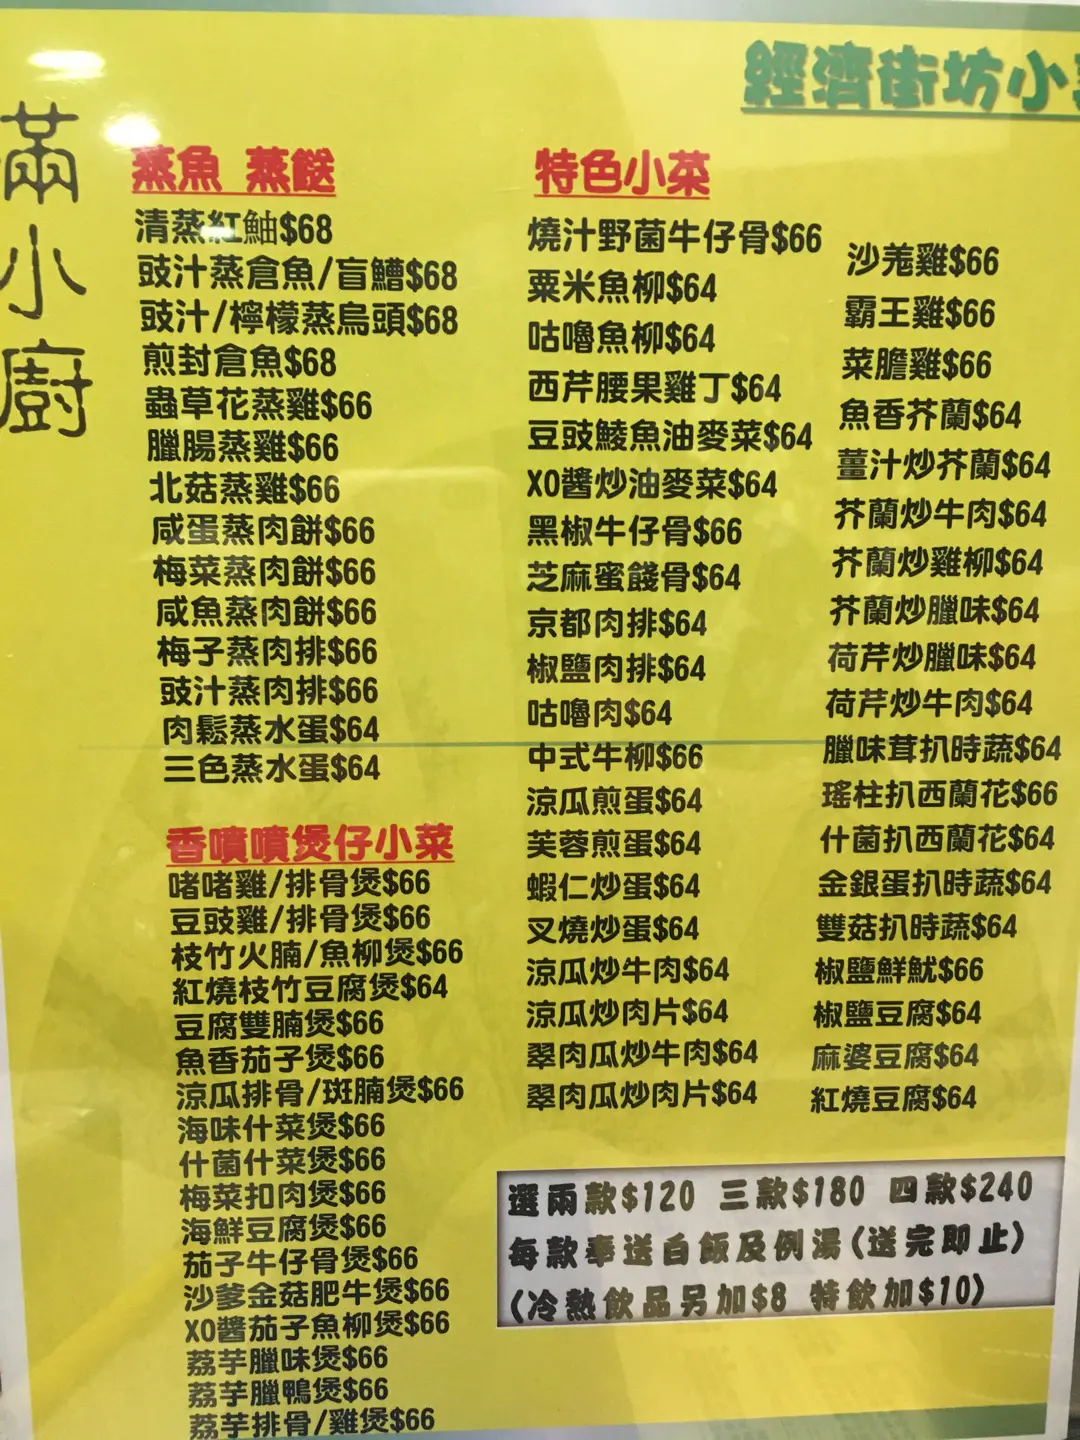 滿小廚
經濟街坊小
蒸魚 蒸餸
清蒸紅鮋$68
豉汁蒸倉魚/盲鰽$68
豉汁/檸檬蒸烏頭$68
煎封倉魚$68
蟲草花蒸雞$66
臘腸蒸雞$66
北菇蒸雞$66
咸蛋蒸肉餅$66
梅菜蒸肉餅$66
咸魚蒸肉餅$66
梅子蒸肉排$66
豉汁蒸肉排$66
肉鬆蒸水蛋$64
三色蒸水蛋$64
香噴噴煲仔小菜
啫啫雞/排骨煲$66
豆豉雞/排骨煲$66
枝竹火腩/魚柳煲$66
紅燒枝竹豆腐煲$64
豆腐雙腩煲$66
魚香茄子煲$66
涼瓜排骨/斑腩煲$66
海味什菜煲$66
什菌什菜煲$66
梅菜扣肉煲$66
海鮮豆腐煲$66
茄子牛仔骨煲$66
沙爹金菇肥牛煲$66
XO醬茄子魚柳煲$66
荔芋臘味煲$66
荔芋臘鴨煲$66
荔芋排骨/雞煲$66
特色小菜
燒汁野菌牛仔骨$66
粟米魚柳$64
咕嚕魚柳$64
西芹腰果雞丁$64
豆豉鯪魚油麥菜$64
XO醬炒油麥菜$64
黑椒牛仔骨$66
芝麻蜜餞骨$64
京都肉排$64
椒鹽肉排$64
咕嚕肉$64
中式牛柳$66
涼瓜煎蛋$64
芙蓉煎蛋$64
蝦仁炒蛋$64
叉燒炒蛋$64
涼瓜炒牛肉$64
涼瓜炒肉片$64
翠肉瓜炒牛肉$64
翠肉瓜炒肉片$64
沙羗雞$66
霸王雞$66
菜膽雞$66
魚香芥蘭$64
薑汁炒芥蘭$64
芥蘭炒牛肉$64
芥蘭炒雞柳$64
芥蘭炒臘味$64
荷芹炒臘味$64
荷芹炒牛肉$64
臘味茸扒時蔬$64
瑤柱扒西蘭花$66
什菌扒西蘭花$64
金銀蛋扒時蔬$64
雙菇扒時蔬$64
椒鹽鮮魷$66
椒鹽豆腐$64
麻婆豆腐$64
紅燒豆腐$64
選兩款$120 三款$180 四款$240
每款奉送白飯及例湯(送完即止)
(冷熱飲品另加$8 特飲加$10)